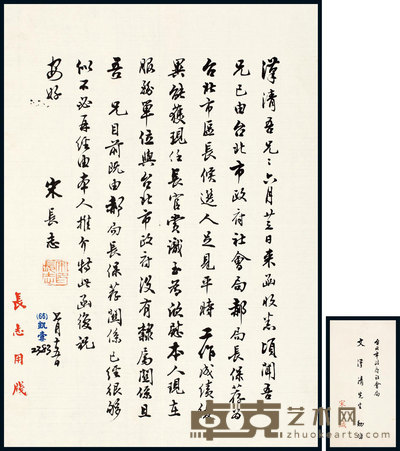 漢清吾兄:六月廿三日來函收悉頃聞吾
兄已由台北市政府社會局郝局長保荐爲
台北市區長候選人足見平時工作成績優
異能獲現任長官賞識至爲欣慰本人現在
服務單位與台北市政府沒有隸屬關係且
吾 兄目前既由郝局長保荐關係已經很够
似不必再經由本人推介特此函復祝
安好
宋長志
七月十五日
(65)毅豪
2783
長志用牋
台北市政府社會局
文漢清先生
卓克艺术网